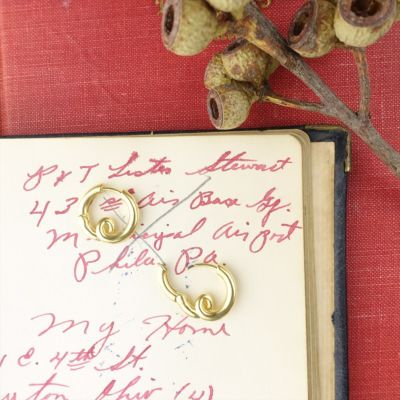 Pvt Lister Stewart
43 Air Base Sq.
Municipal Air Port
Phila Pa.
My Home
E. 4th St.
Ohio (4)